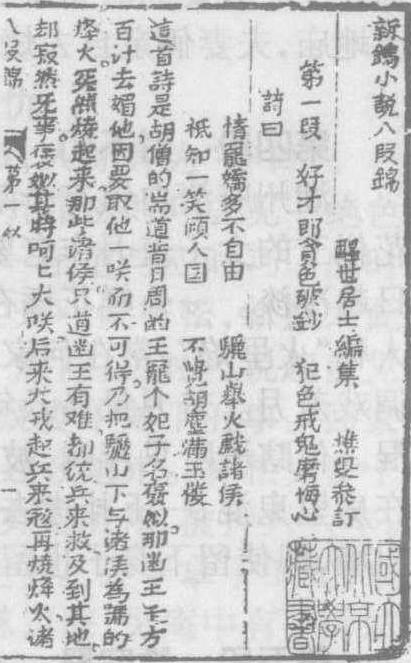 新鐫小說八段錦
醒世居士編集 樵叟參訂
第一段 好才郎貪色破鈔 犯色戒鬼磨悔心
詩曰
情寵嬌多不自由 驪山舉火戲諸侯
祗知一笑傾人国 不覺胡塵滿玉楼
這首詩是胡僧的 道昔日周幽王寵个妃子名褒姒那幽王千方
百计去媚他因要取他一咲而不可得乃把驪山下与诸侯為號的
烽火突然燒起来那些诸侯只道幽王有难都统兵来救及到其地
却寂然无事褒姒其時呵呵大咲后来犬戎起兵来寇再燒烽火诸
八段錦 第一段 一
国立北京大学藏書